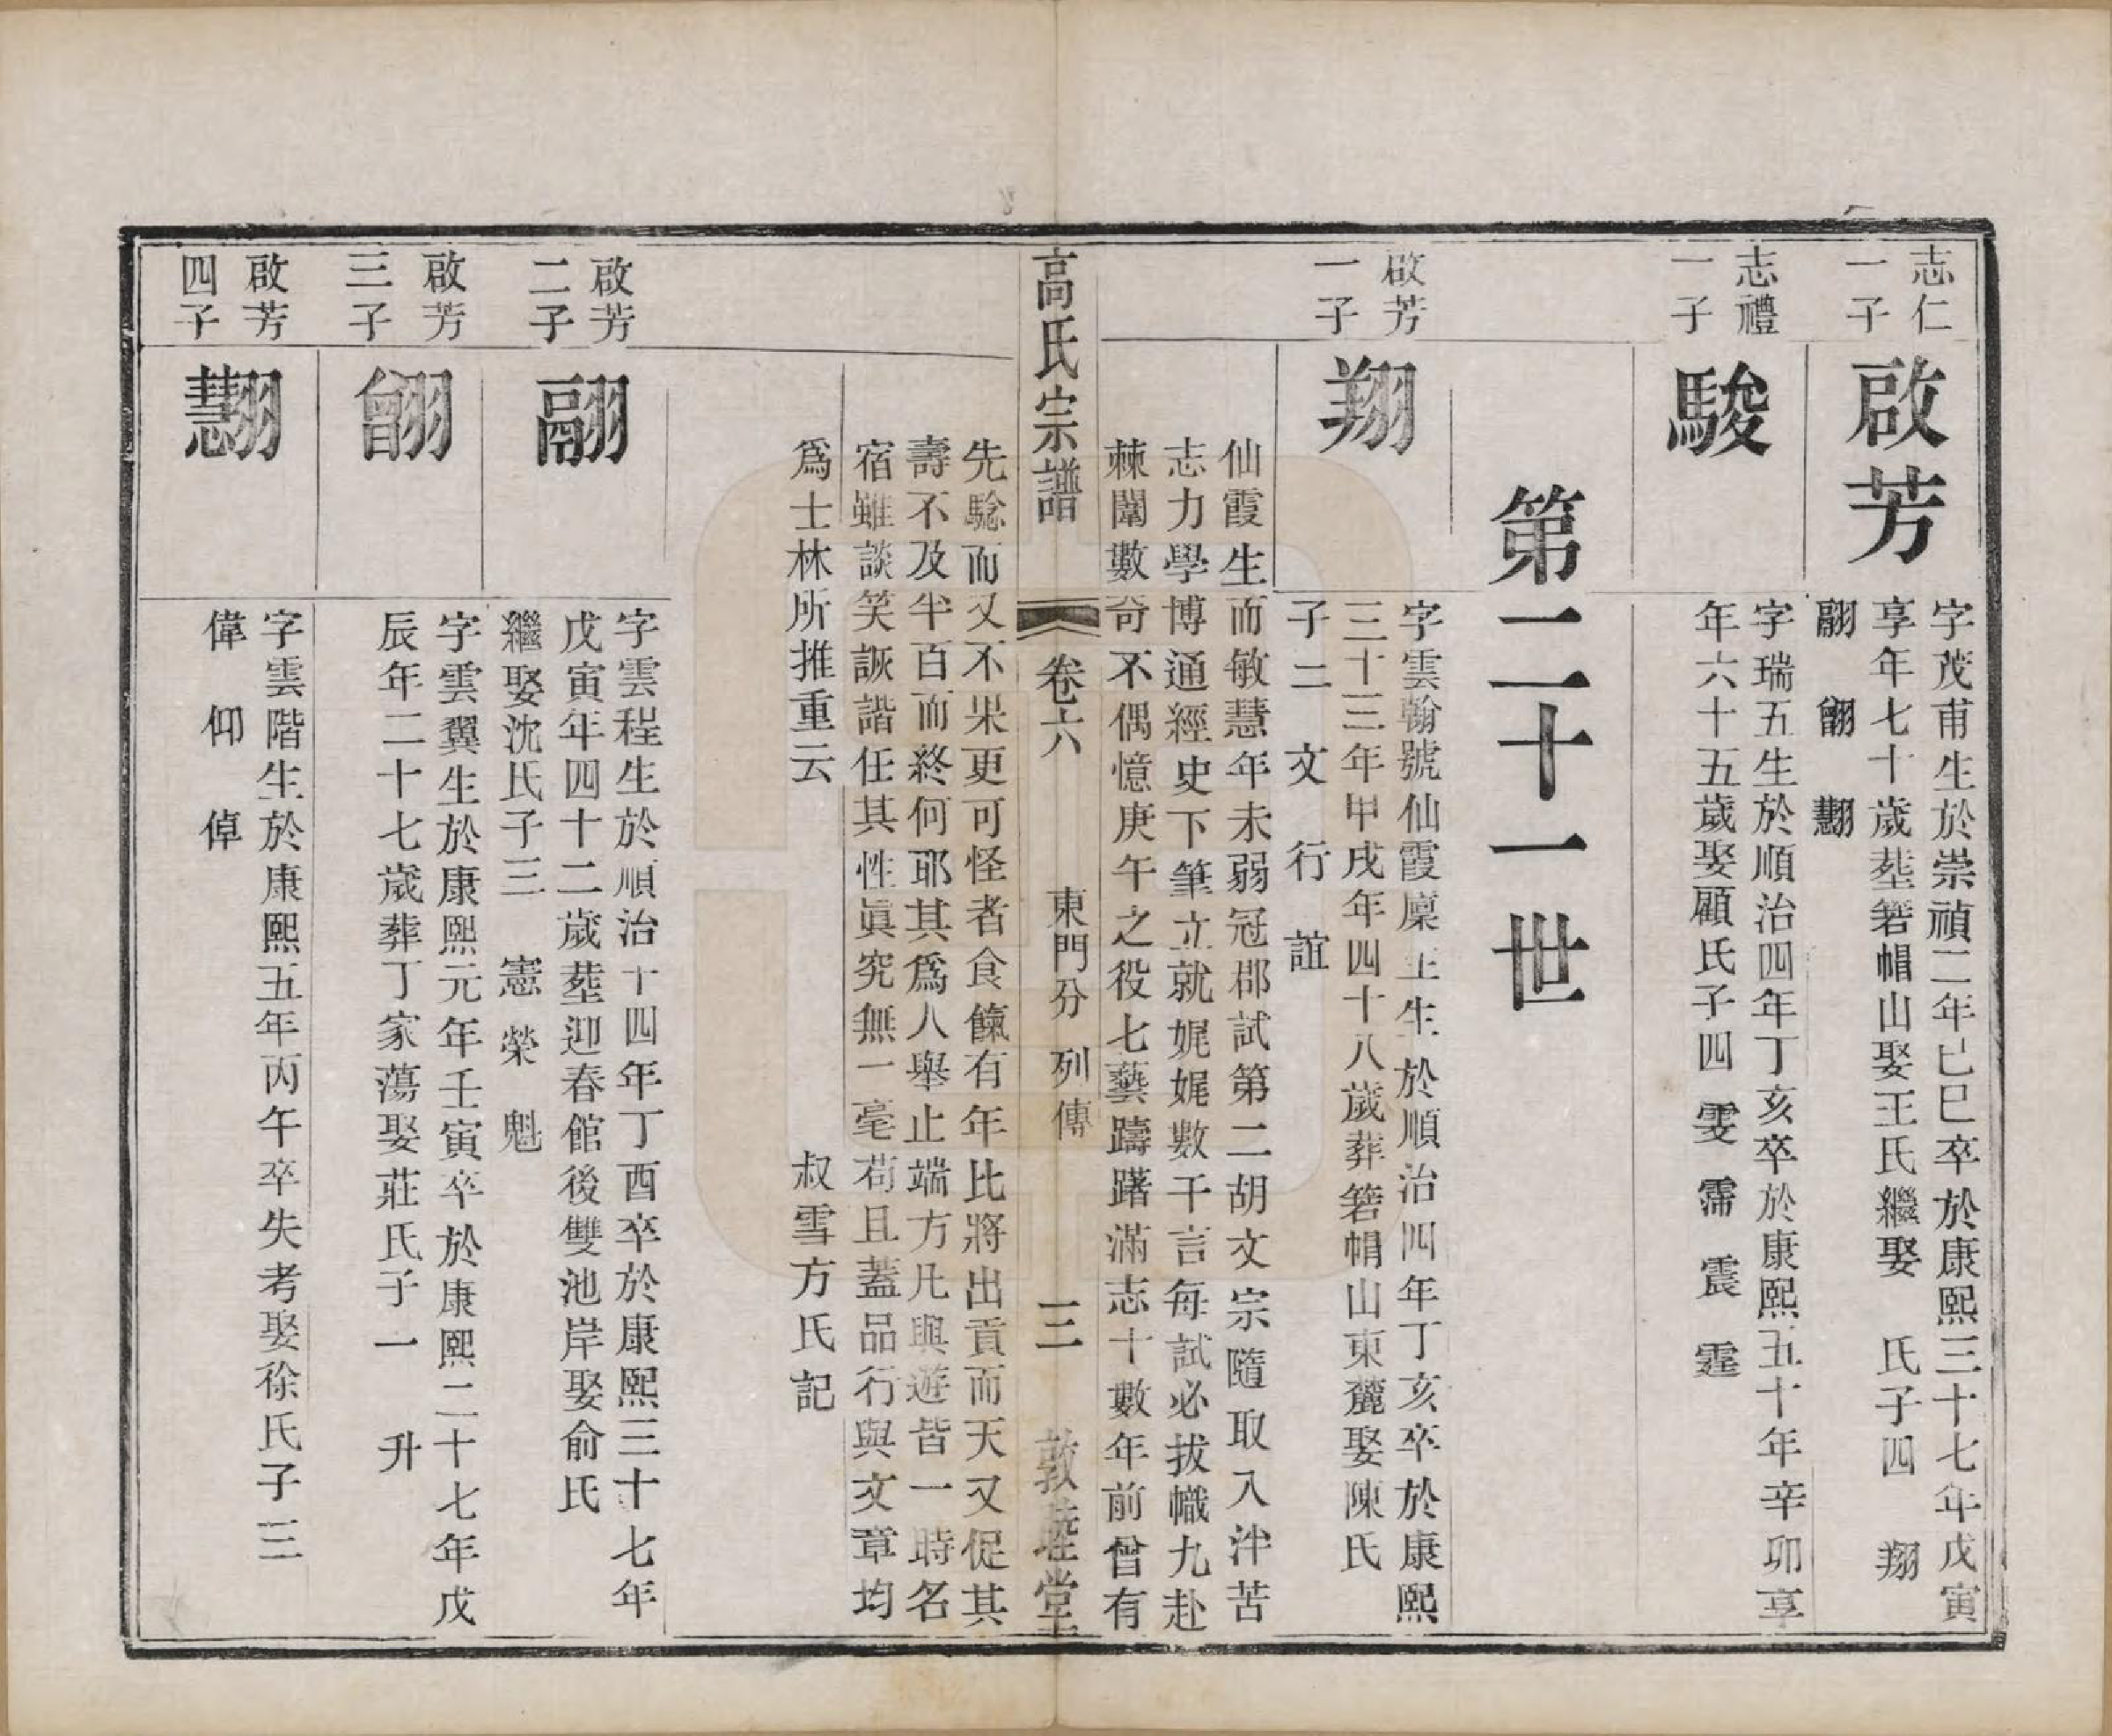 志仁
一子
啟芳
字茂甫生於崇禎二年己巳卒於康熙三十七年戊寅
享年七十歲塟箬帽山娶王氏繼娶　氏子四　翔
翮　鄶　翿
志禮
一子
駿
字瑞五生於順治四年丁亥卒於康熙五十年辛卯享
年六十五歲娶顧氏子四　雯　霈　震　霆
第二十一世
啟芳
一子
翔
字雲翰號仙霞廩生生於順治四年丁亥卒於康熙
三十三年甲戌年四十八歲葬箬帽山東麓娶陳氏
子二　文　行　誼
仙霞生而敏慧年未弱冠郡試第二胡文宗隨取入泮苦
志力學博通經史下筆立就娓娓數千言每試必拔幟九赴
棘闈數奇不偶憶庚午之役七藝躊躇滿志十數年前曾有
高氏宗譜　卷六　東門分　列傳　三　敦堂
先騐而又不果更可怪者食餼有年比將出貢而天又促其
壽不及半百而終何耶其爲人舉止端方凡與遊皆一時名
宿雖談笑詼諧任其性眞究無一毫苟且蓋品行與文章均
爲士林所推重云　叔雪方氏記
啟芳
二子
翮
字雲程生於順治十四年丁酉卒於康熙三十七年
戊寅年四十二歲塟迎春館後雙池岸娶俞氏
繼娶沈氏子三　憲　榮　魁
啟芳
三子
字雲翼生於康熙元年壬寅卒於康熙二十七年戊
辰年二十七歲葬丁家蕩娶莊氏子一　升
啟芳
四子
字雲階生於康熙五年丙午卒失考娶徐氏子三
偉　仰　倬